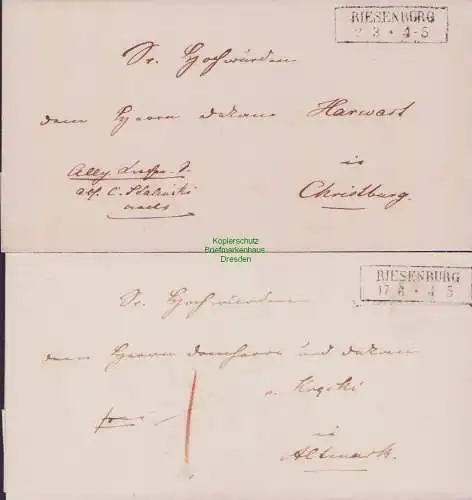 RIESENBURG
2 3 * 4-5
Sr. Hochwürden
dem Herrn Dekan Harwart
in
Christburg.
Kopierschutz
Briefmarkenhaus
Dresden
RIESENBURG
17 4 * 4 5
Sr. Hochwürden
dem Herrn Domherrn und Dekan
v.
in
Altmark.